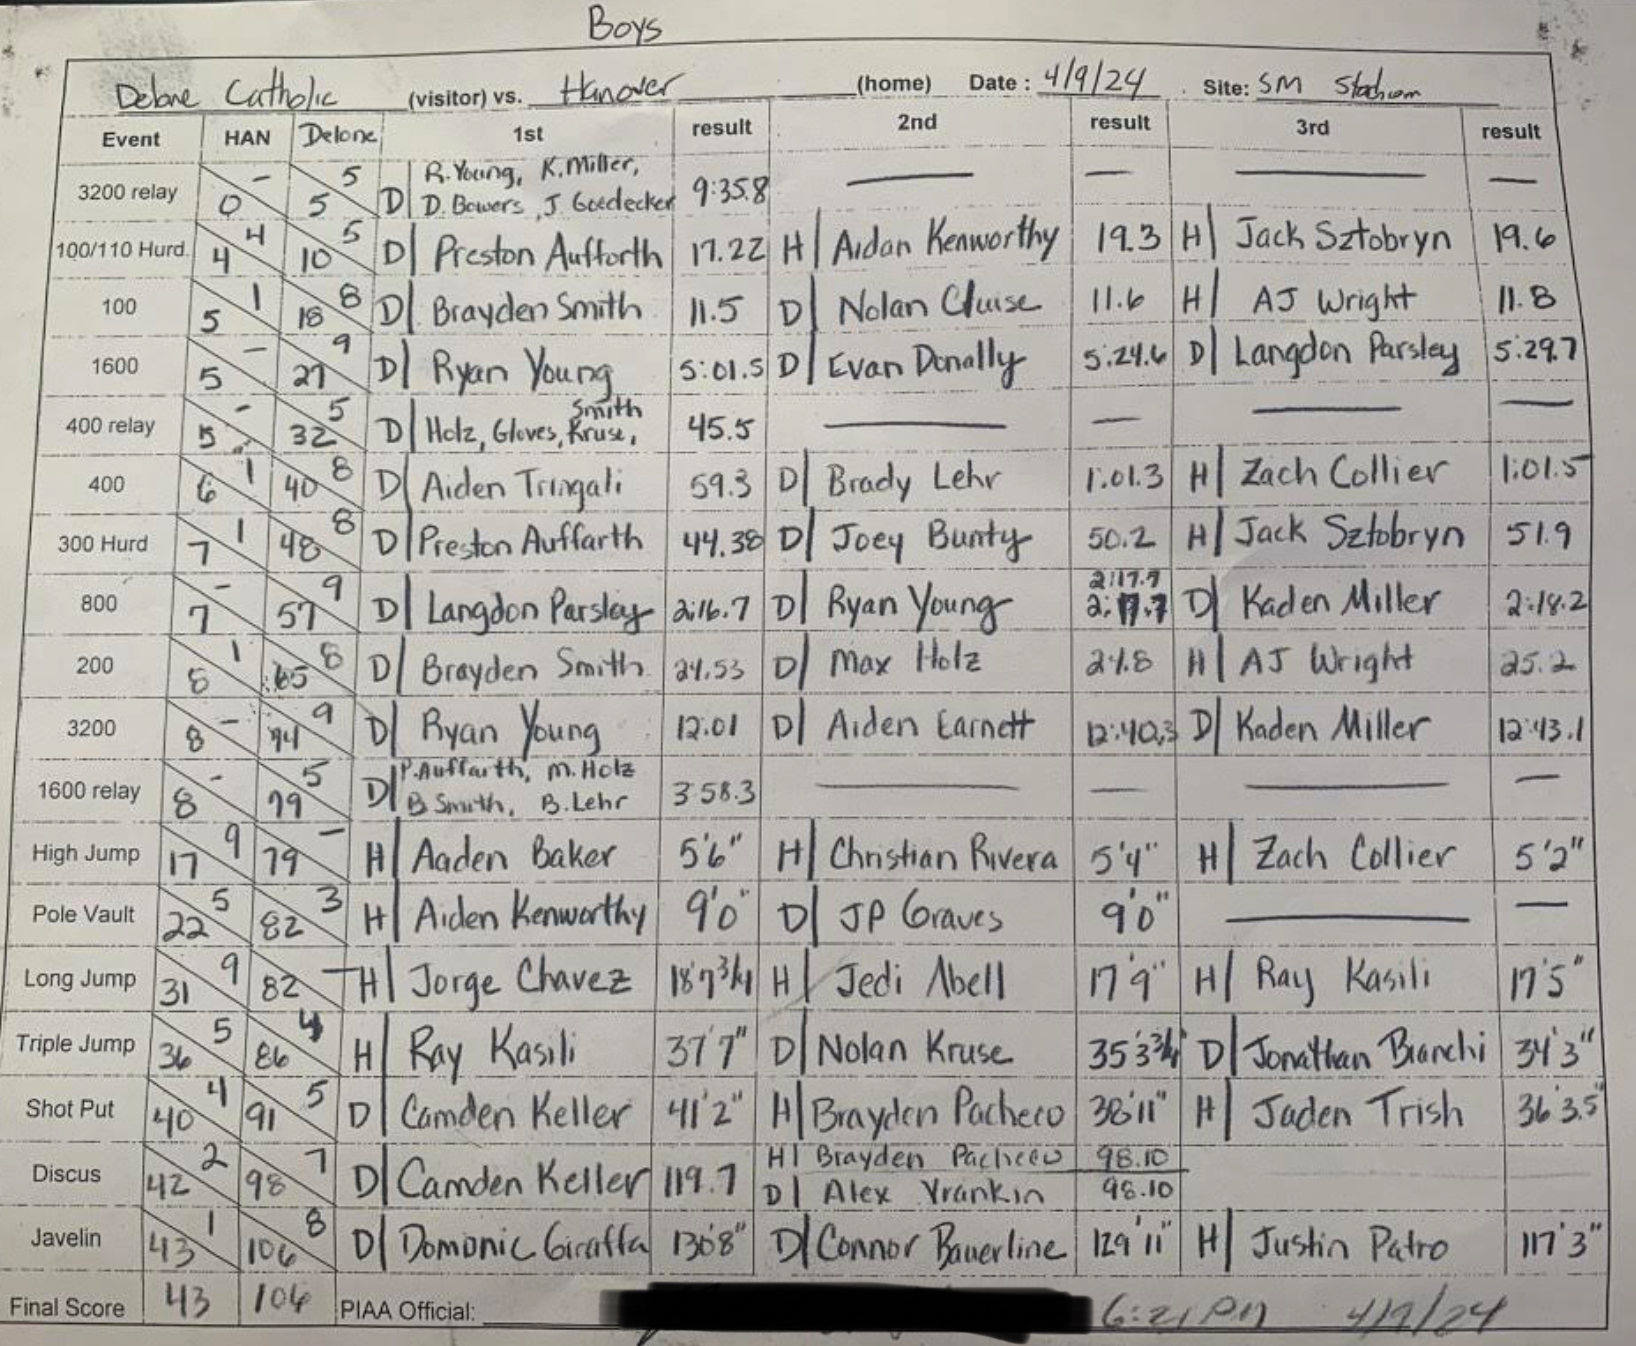 Boys
Delone Catholic (visitor) vs. Hanover (home) Date : 4/9/24 Site: SM Stadium
Event HAN Delone 1st result 2nd result 3rd result
3200 relay – 0 5 5 D| R. Young, K. Miller, D. Bowers, J. Goedecker 9:35.8 — — — —
100/110 Hurd. 4 4 5 10 D| Preston Aufforth 17.22 H| Aidan Kenworthy 19.3 H| Jack Sztobryn 19.6
100 1 5 8 18 D| Brayden Smith 11.5 D| Nolan Cluise 11.6 H| AJ Wright 11.8
1600 – 5 9 27 D| Ryan Young 5:01.5 D| Evan Donally 5:24.6 D| Langdon Parsley 5:29.7
400 relay – 5 5 32 D| Holz, Gloves, Kruse, Smith 45.5 — — — —
400 1 6 8 40 D| Aiden Tringali 59.3 D| Brady Lehr 1:01.3 H| Zach Collier 1:01.5
300 Hurd 1 7 8 48 D| Preston Auffarth 44.38 D| Joey Bunty 50.2 H| Jack Sztobryn 51.9
800 – 7 9 57 D| Langdon Parsley 2:16.7 D| Ryan Young 2:17.7 D| Kaden Miller 2:18.2
200 1 8 8 65 D| Brayden Smith 24.53 D| Max Holz 24.8 H| AJ Wright 25.2
3200 – 8 9 74 D| Ryan Young 12:01 D| Aiden Earnett 12:40.3 D| Kaden Miller 12:43.1
1600 relay – 8 5 79 D| P. Auffarth, M. Holz B Smith, B. Lehr 3:58.3 — — — —
High Jump 9 17 – 79 H| Aaden Baker 5'6" H| Christian Rivera 5'4" H| Zach Collier 5'2"
Pole Vault 5 22 3 82 H| Aiden Kenworthy 9'0" D| JP Graves 9'0" — —
Long Jump 9 31 – 82 H| Jorge Chavez 18'7 3/4 H| Jedi Abell 17'9" H| Ray Kasili 17'5"
Triple Jump 5 36 4 86 H| Ray Kasili 37'7" D| Nolan Kruse 35'3 3/4" D| Jonathan Bianchi 34'3"
Shot Put 4 40 5 91 D| Camden Keller 41'2" H| Brayden Pacheco 38'11" H| Jaden Trish 36'3.5"
Discus 2 42 7 98 D| Camden Keller 119.7 H| Brayden Pacheco 98.10
D| Alex Vrankin 98.10
Javelin 1 43 8 106 D| Domonic Giraffa 130'8" D| Connor Bauerline 129'11" H| Justin Patro 117'3"
Final Score 43 106 PIAA Official: 6:21 PM 4/9/24